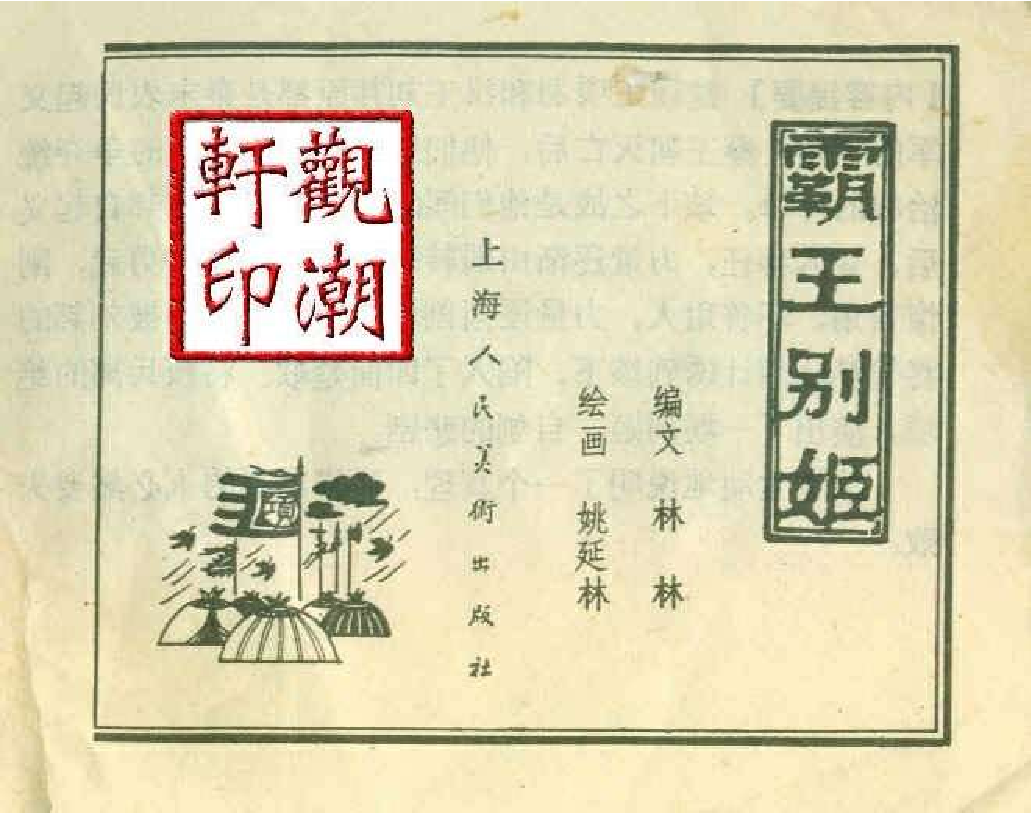 霸王别姬
编文 林林
绘画 姚延林
上海人民美術出版社
觀潮
軒印